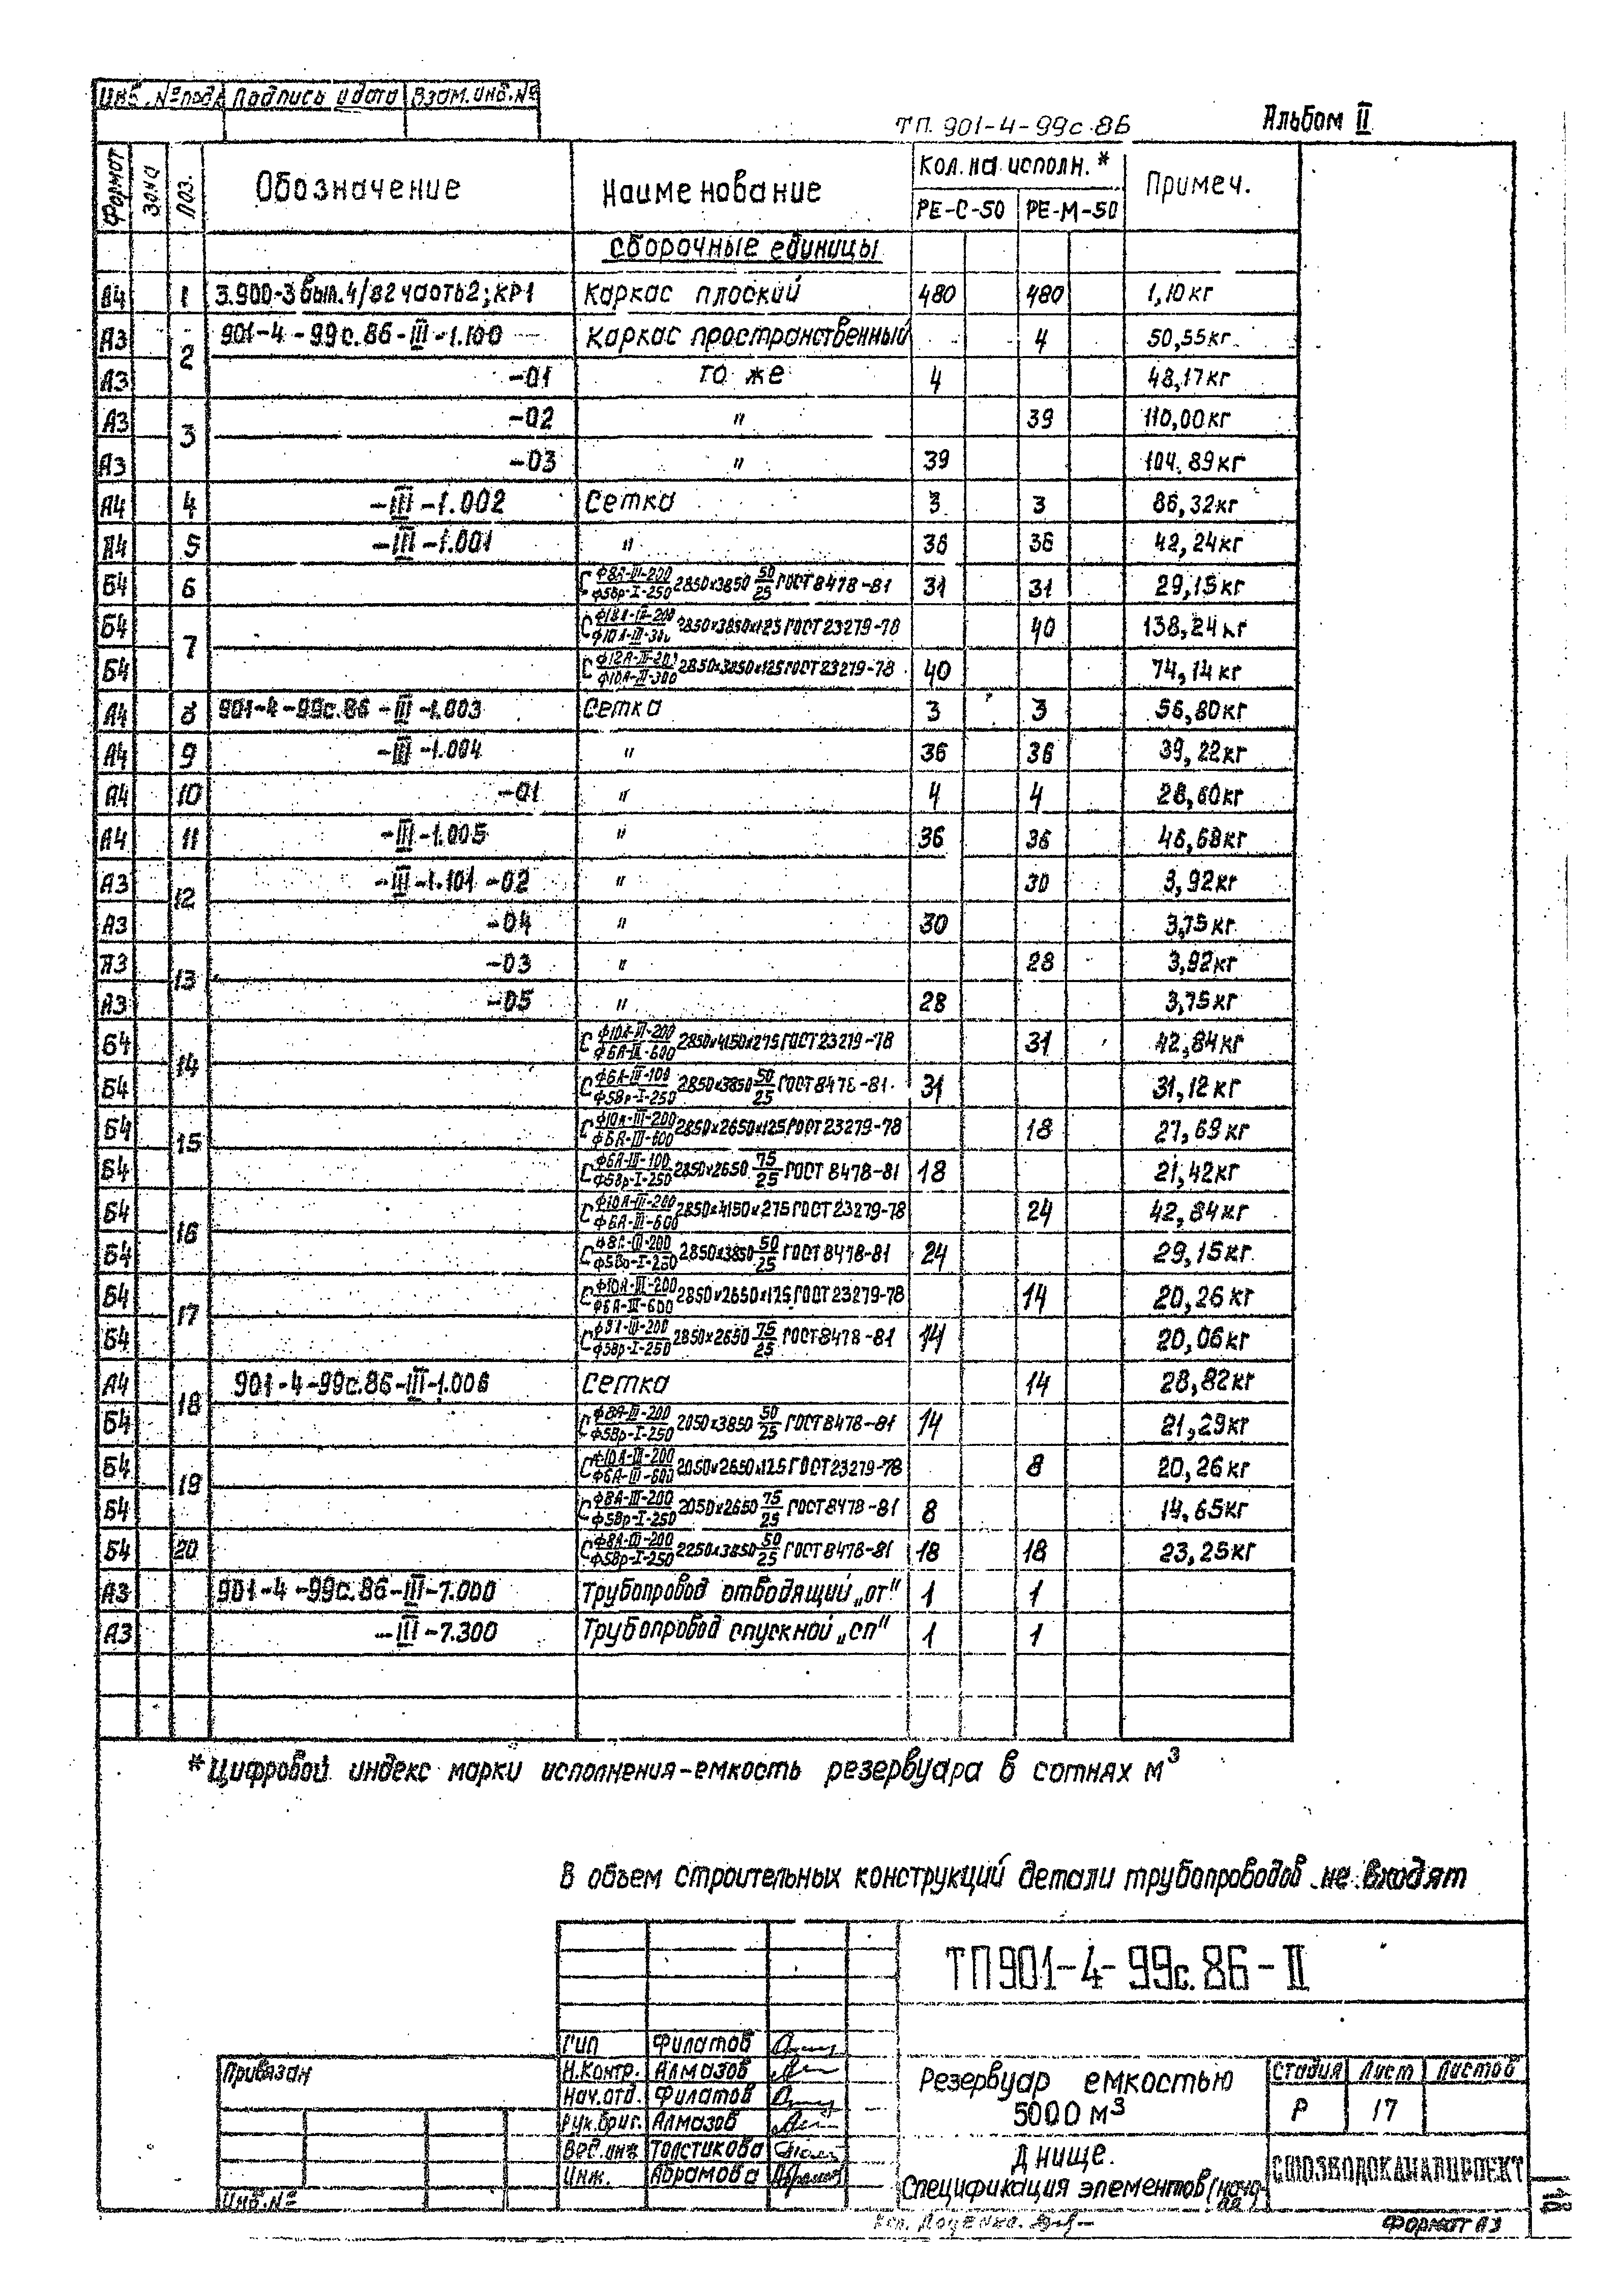 Инв. № подл. Подпись и дата Взам. инв. №
ТП. 901-4-99с.86 Альбом II
Формат Зона Поз. Обозначение Наименование Кол. на исполн.* Примеч.
РЕ-С-50 РЕ-М-50
Сборочные единицы
А4 1 3.900-3 вып.4/82 часть2; КР1 Каркас плоский 480 480 1,10кг
А3 2 901-4-99с.86-III-1.100 Каркас пространственный 4 50,55кг
А3 -01 то же 4 48,17кг
А3 3 -02 " 39 110,00кг
А3 -03 " 39 104,89кг
А4 4 -III-1.002 Сетка 3 3 86,32кг
А4 5 -III-1.001 " 36 36 42,24кг
Б4 6 С Ф8А-III-200/Ф5Вр-I-250 2850х3850 50/25 ГОСТ 8478-81 31 31 29,15кг
Б4 7 2850х3850х125 ГОСТ 23279-78 40 138,24кг
Б4 С Ф12А-III-200/Ф10А-III-300 2850х3850х125 ГОСТ 23279-78 40 74,14кг
А4 8 901-4-99с.86-III-1.003 Сетка 3 3 56,80кг
А4 9 -III-1.004 " 36 36 39,22кг
А4 10 -01 " 4 4 28,60кг
А4 11 -III-1.005 " 36 36 46,68кг
А3 12 -III-1.101-02 " 30 3,92кг
А3 -04 " 30 3,75кг
А3 13 -03 " 28 3,92кг
А3 -05 " 28 3,75кг
Б4 14 С Ф10А-III-200/Ф6А-III-600 2850х4150х275 ГОСТ 23279-78 31 42,84кг
Б4 С Ф6А-III-100/Ф5Вр-I-250 2850х3850 50/25 ГОСТ 8478-81 31 31,12кг
Б4 15 С Ф10А-III-200/Ф6А-III-600 2850х2650х125 ГОСТ 23279-78 18 27,69кг
Б4 С Ф6А-III-100/Ф5Вр-I-250 2850х2650 75/25 ГОСТ 8478-81 18 21,42кг
Б4 16 С Ф10А-III-200/Ф6А-III-600 2850х4150х275 ГОСТ 23279-78 24 42,84кг
Б4 С Ф8А-III-200/Ф5Вр-I-250 2850х3850 50/25 ГОСТ 8478-81 24 29,15кг
Б4 17 С Ф10А-III-200/Ф6А-III-600 2850х2650х125 ГОСТ 23279-78 14 20,26кг
Б4 С Ф8А-III-200/Ф5Вр-I-250 2850х2650 75/25 ГОСТ 8478-81 14 20,06кг
А4 18 901-4-99с.86-III-1.006 Сетка 14 28,82кг
Б4 С Ф8А-III-200/Ф5Вр-I-250 2050х3850 50/25 ГОСТ 8478-81 14 21,29кг
Б4 19 С Ф10А-III-200/Ф6А-III-600 2050х2650х125 ГОСТ 23279-78 8 20,26кг
Б4 С Ф8А-III-200/Ф5Вр-I-250 2050х2650 75/25 ГОСТ 8478-81 8 14,65кг
Б4 20 С Ф8А-III-200/Ф5Вр-I-250 2250х3850 50/25 ГОСТ 8478-81 18 18 23,25кг
А3 901-4-99с.86-III-7.000 Трубопровод отводящий „от" 1 1
А3 -III-7.300 Трубопровод спускной „сп" 1 1
*Цифровой индекс марки исполнения-емкость резервуара в сотнях м³
В объем строительных конструкций детали трубопроводов не входят
ТП901-4-99с.86-II
Гип Филатов
Н.контр. Алмазов
Нач.отд. Филатов
Рук.бриг. Алмазов
Вед.инж Толстикова
Инж. Абрамова
Привязан
Инв.№
Резервуар емкостью
5000 м³
Стадия Лист Листов
Р 17
Днище.
Спецификация элементов (начало)
СОЮЗВОДОКАНАЛПРОЕКТ
Коп. Доценко.
Формат А3
18